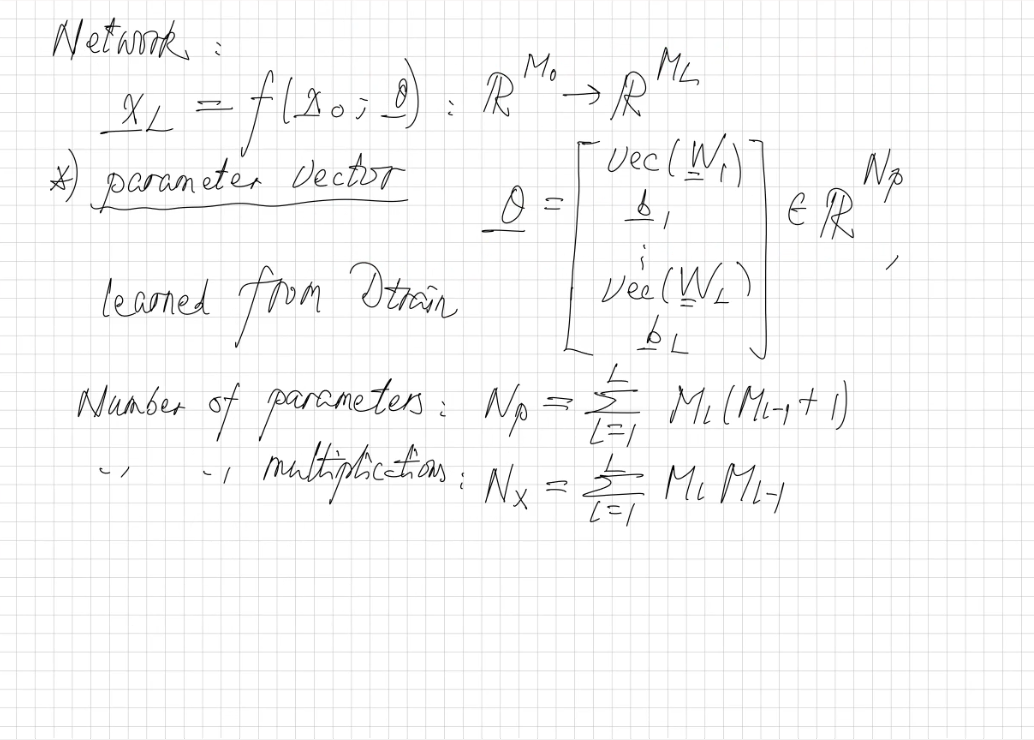 Network :
x_L = f(x_0 ; θ) : ℝ^{M_0} → ℝ^{M_L}
*) parameter vector
θ = [ vec(W_1) b_1 ⋮ vec(W_L) b_L ] ∈ ℝ^{N_p} ,
learned from Dtrain
Number of parameters : N_p = ∑_{l=1}^{L} M_l (M_{l-1} + 1)
" " multiplications : N_x = ∑_{l=1}^{L} M_l M_{l-1}